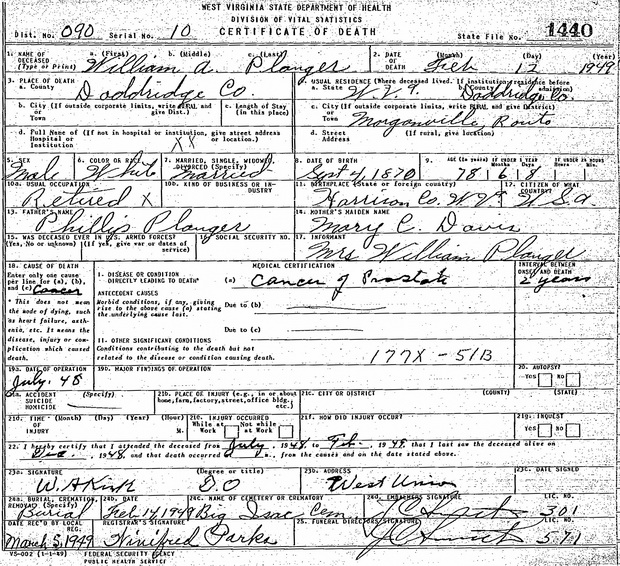 WEST VIRGINIA STATE DEPARTMENT OF HEALTH
DIVISION OF VITAL STATISTICS
Dist. No. 090 Serial No. 10 CERTIFICATE OF DEATH State File No. 1440
1. NAME OF DECEASED (Type or Print) a. (First) b. (Middle) c. (Last) William A. Plauger
2. DATE OF DEATH (Month) (Day) (Year) Feb 12 1949
3. PLACE OF DEATH
a. County Doddridge Co.
4. USUAL RESIDENCE (Where deceased lived. If institution: residence before
a. State W. Va. b. County Doddridge Co.
b. City (If outside corporate limits, write RURAL and
Or Town give Dist.)
c. Length of Stay (in this place)
c. City (If outside corporate limits, write RURAL and give District)
Or Town Morganville Route
d. Full Name of (If not in hospital or institution, give street address
Hospital or Institution or location) XX
d. Street Address (If rural, give location)
5. SEX Male
6. COLOR OR RACE White
7. MARRIED, SINGLE, WIDOWED, DIVORCED (Specify) Married
8. DATE OF BIRTH Sept 4, 1870
9. AGE (In years) IF UNDER 1 YEAR IF UNDER 24 HRS. 78
10a. USUAL OCCUPATION Retired X
10b. KIND OF BUSINESS OR INDUSTRY
11. BIRTHPLACE (State or foreign country) Harrison Co. W. Va.
12. CITIZEN OF WHAT COUNTRY? U.S.A
13. FATHER'S NAME Phillip Plauger
14. MOTHER'S MAIDEN NAME Mary C. Davis
15. WAS DECEASED EVER IN U.S. ARMED FORCES?
(Yes, No or unknown) (If yes, give war or dates of service)
16. SOCIAL SECURITY NO.
17. INFORMANT Mrs William Plauger
18. CAUSE OF DEATH
Enter only one cause per line for (a), (b), and (c) Cancer
* This does not mean the mode of dying, such as heart failure, asthenia, etc. It means the disease, injury or complication which caused death.
MEDICAL CERTIFICATION
INTERVAL BETWEEN ONSET AND DEATH
I. DISEASE OR CONDITION
DIRECTLY LEADING TO DEATH* (a) Cancer of Prostate 2 years
ANTECEDENT CAUSES
Morbid conditions, if any, giving rise to the above cause (a) stating the underlying cause last.
Due to (b)
Due to (c)
II. OTHER SIGNIFICANT CONDITIONS
Conditions contributing to the death but not related to the disease or condition causing death.
177X - 51B
19a. DATE OF OPERATION July. 48
19b. MAJOR FINDINGS OF OPERATION
20. AUTOPSY?
YES NO
21a. ACCIDENT (Specify)
SUICIDE
HOMICIDE
21b. PLACE OF INJURY (e.g., in or about home, farm, factory, street, office bldg., etc.)
21c. CITY OR DISTRICT (COUNTY) (STATE)
21d. TIME OF INJURY (Month) (Day) (Year) (Hour) M.
21e. INJURY OCCURRED
While at Work Not while at Work
21f. HOW DID INJURY OCCUR?
21g. INQUEST
YES NO
22. I hereby certify that I attended the deceased from July, 1948, to Feb., 1949, that I last saw the deceased alive on
Dec., 1948, and that death occurred from the causes and on the date stated above.
23a. SIGNATURE (Degree or title) W. A Kirk D.O
23b. ADDRESS West Union
23c. DATE SIGNED
24a. BURIAL, CREMATION, REMOVAL (Specify) Burial
24b. DATE Feb 14, 1949
24c. NAME OF CEMETERY OR CREMATORY Big Isac Cem
24d. EMBALMER'S SIGNATURE LIC. NO. 301
DATE REC'D BY LOCAL REG. March 3, 1949
REGISTRAR'S SIGNATURE Winifred Parks
25. FUNERAL DIRECTOR'S SIGNATURE LIC. NO. 571
VS-002 (1-1-49) FEDERAL SECURITY AGENCY
PUBLIC HEALTH SERVICE